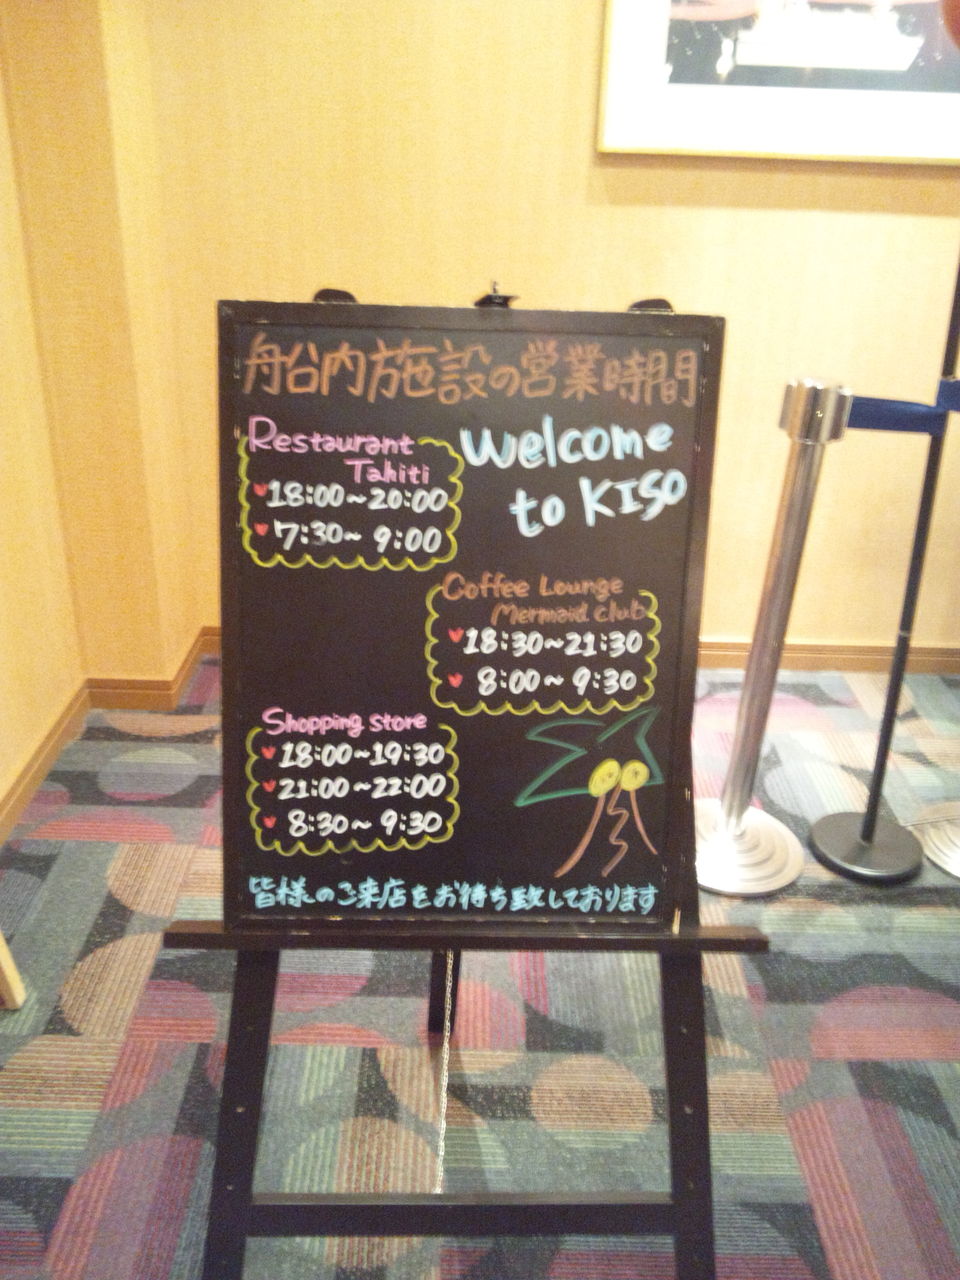 船内施設の営業時間
Restaurant
Tahiti
18:00~20:00
7:30~ 9:00
Welcome
to KISO
Coffee Lounge
Mermaid club
18:30~21:30
8:00~ 9:30
Shopping store
18:00~19:30
21:00~22:00
8:30~ 9:30
皆様のご来店をお待ち致しております